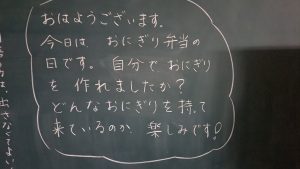 おはようございます。
今日は、おにぎり弁当の
日です。自分でおにぎり
を作れましたか?
どんなおにぎりを持って
来ているのか、楽しみです!
は、出さなくてよい